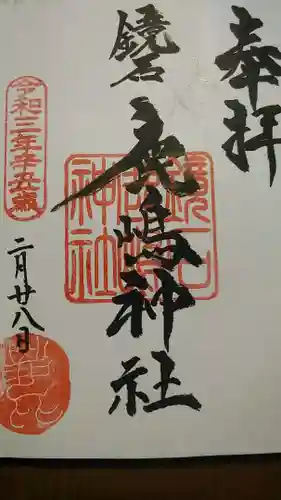 奉拝
鏡石
鹿嶋神社
鏡石
神社
令和三年辛丑歳
二月廿八日